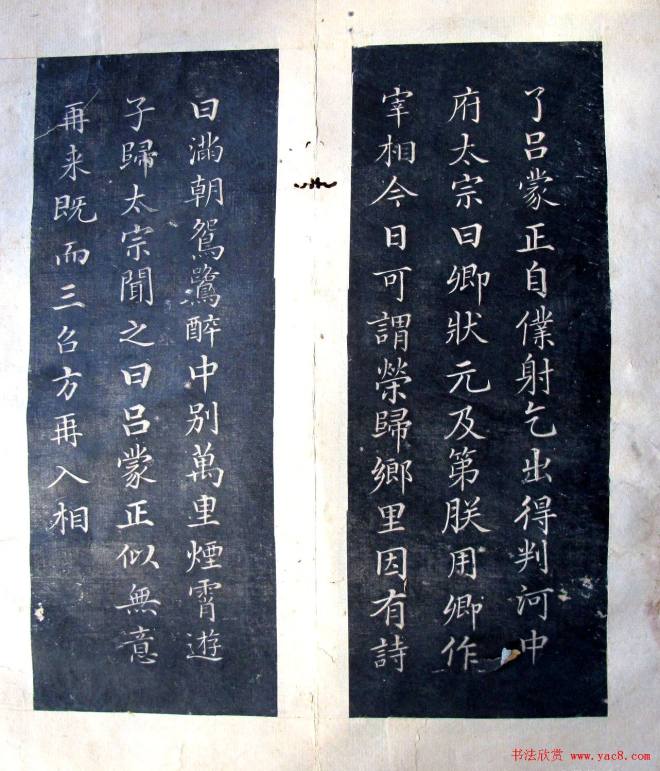 了吕蒙正自僕射乞出得判河中
府太宗曰卿狀元及第朕用卿作
宰相今日可謂榮歸鄉里因有詩
曰滿朝鴛鷺醉中別萬里煙霄遊
子歸太宗聞之曰吕蒙正似無意
再来既而三召方再入相
书法欣赏 www.yac8.com